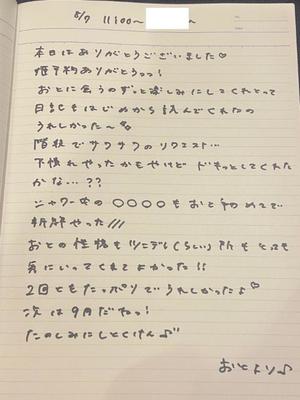 5/7 11:00〜
本日はありがとうございました♡
姫予約ありがとうっっ!
おとに会うのずっと楽しみにしてくれとって
日記もはじめから読んでくれたの
うれしかった〜
階段でサワサワのリクエスト…
不慣れやったかもやけど ドキっとしてくれた
かな…??
シャワー中の○○○○もおと初めてで
新鮮やった///
おとの性格もツンデレ(らしい)所もとっても
気にいってくれてよかった!!
2回ともたっぷりでうれしかったよ♡
次は9月だやっ!
たのしみにしとくけん♪
おとより♪